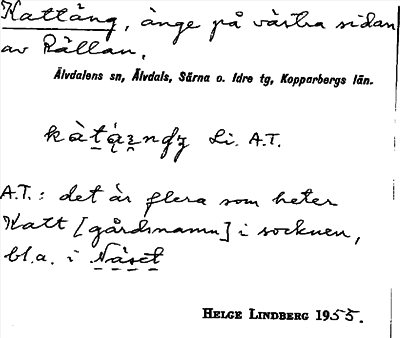 Kattäng, änge på västra sidan
av Rällan.
Älvdalens sn, Älvdals, Särna o. Idre tg, Kopparbergs län.
Li. A.T.
A.T.: det är flera som heter
Katt [gårdsnamn] i socknen,
bl.a. i Näset
HELGE LINDBERG 1955.